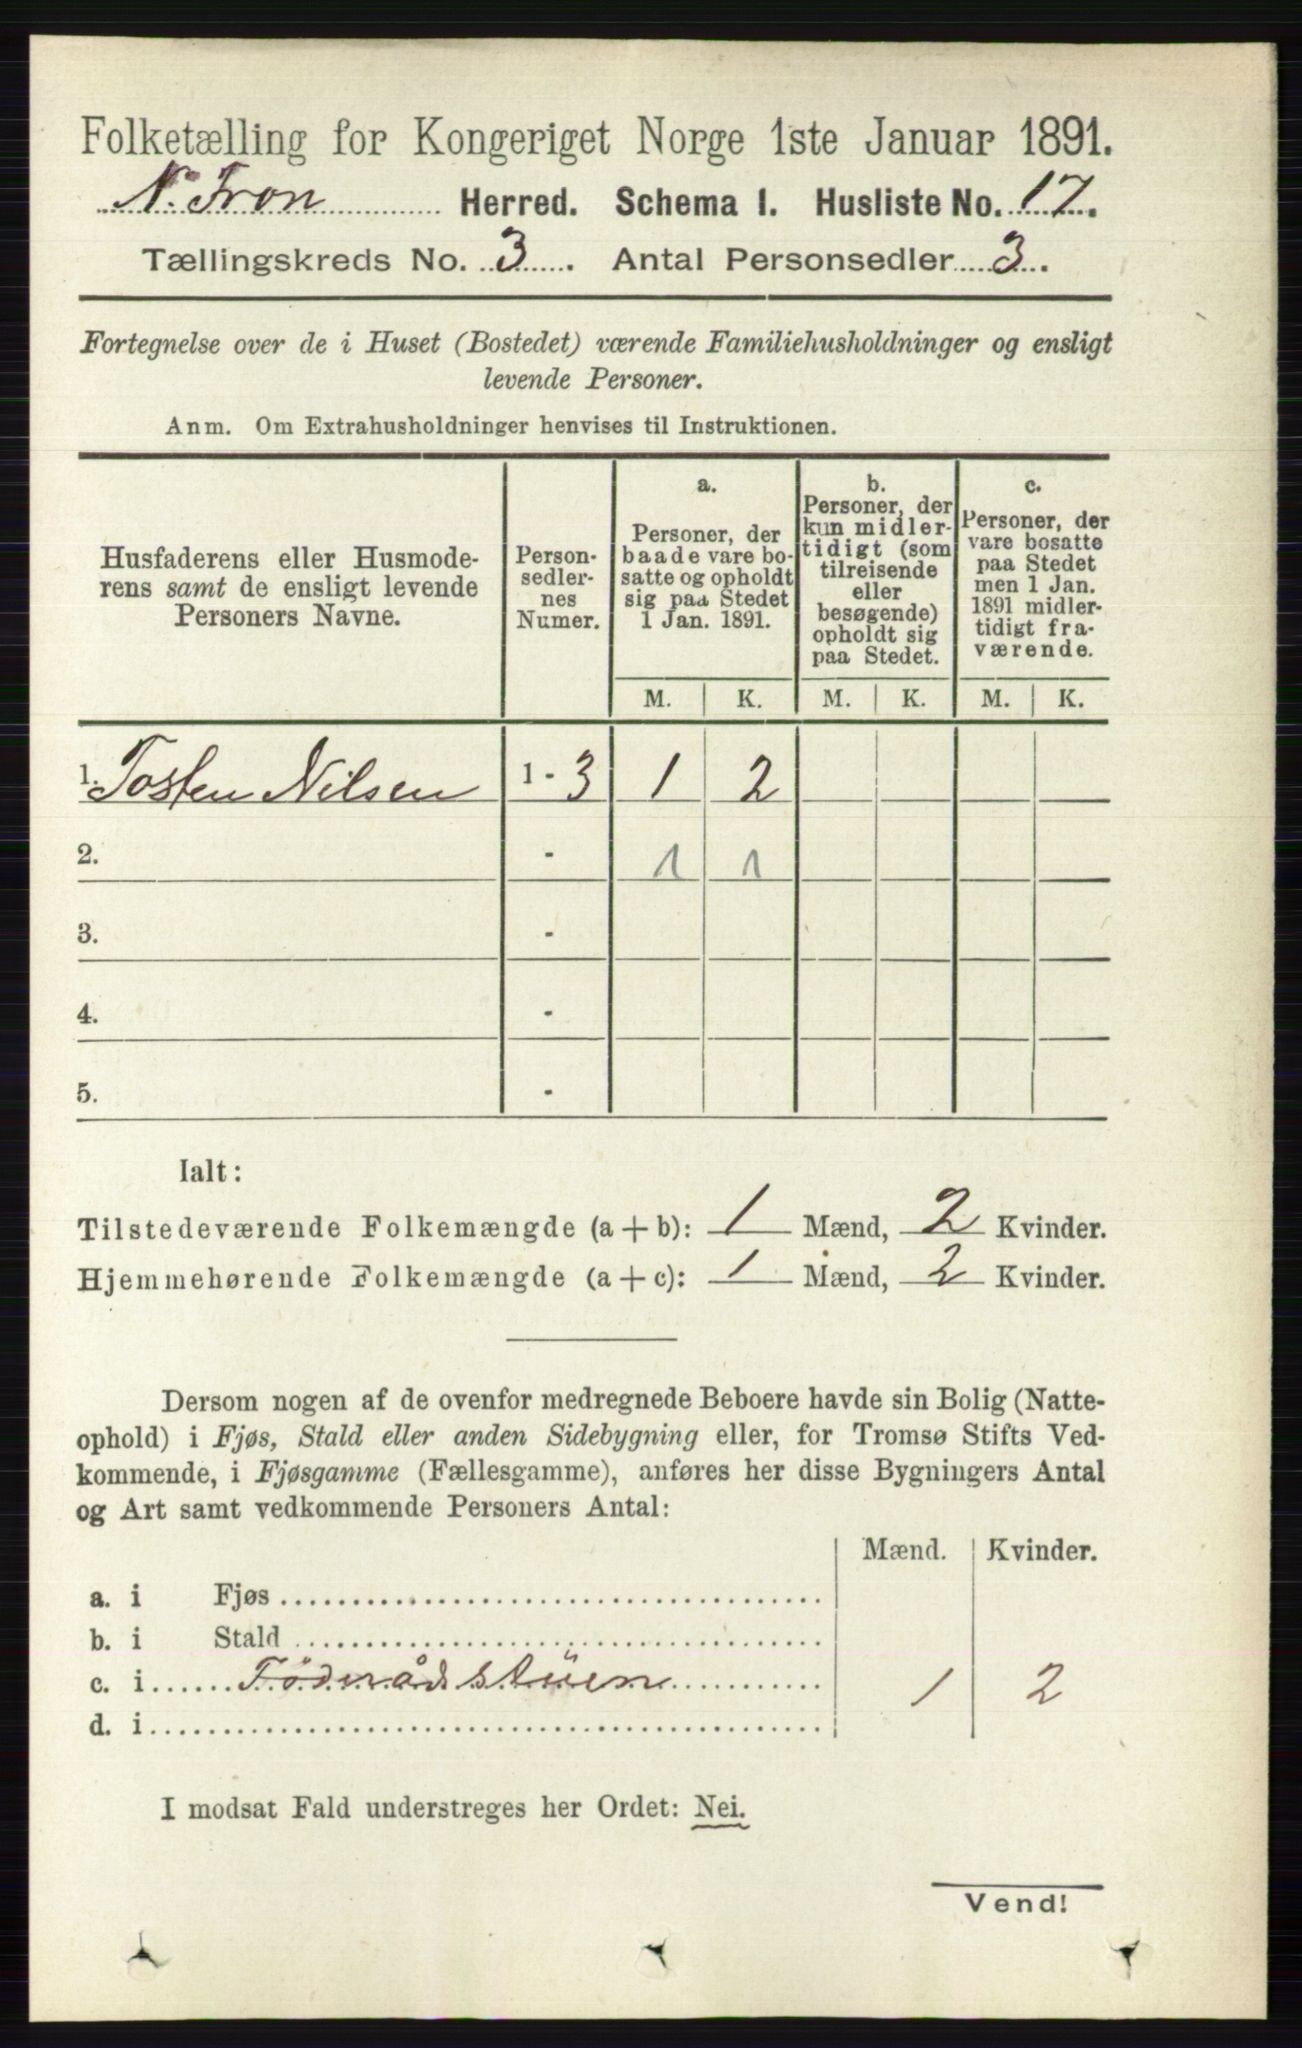 Folketælling for Kongeriget Norge 1ste Januar 1891.
N. Fron Herred. Schema 1. Husliste No. 17.
Tællingskreds No. 3. Antal Personsedler 3.
Fortegnelse over de i Huset (Bostedet) værende Familiehusholdninger og ensligt
levende Personer.
Anm. Om Extrahusholdninger henvises til Instruktionen.
Husfaderens eller Husmode-
rens samt de ensligt levende
Personers Navne.
Person-
sedler-
nes
Numer.
a.
Personer, der
baade vare bo-
satte og opholdt
sig paa Stedet
1 Jan. 1891.
b.
Personer, der
kun midler-
tidigt (som
tilreisende
eller
besøgende)
opholdt sig
paa Stedet.
c.
Personer, der
vare bosatte
paa Stedet
men 1 Jan.
1891 midler-
tidigt fra-
værende.
M. K. M. K. M. K.
1. Tosten Nilsen 1 - 3 1 2
2. - 1 1
3. -
4. -
5. -
Ialt:
Tilstedeværende Folkemængde (a + b): 1 Mænd, 2 Kvinder.
Hjemmehørende Folkemængde (a + c): 1 Mænd, 2 Kvinder.
Dersom nogen af de ovenfor medregnede Beboere havde sin Bolig (Natte-
ophold) i Fjøs, Stald eller anden Sidebygning eller, for Tromsø Stifts Ved-
kommende, i Fjøsgamme (Fællesgamme), anføres her disse Bygningers Antal
og Art samt vedkommende Personers Antal:
Mænd. Kvinder.
a. i Fjøs
b. i Stald
c. i Föderådstüen 1 2
d. i
I modsat Fald understreges her Ordet: Nei.
Vend!